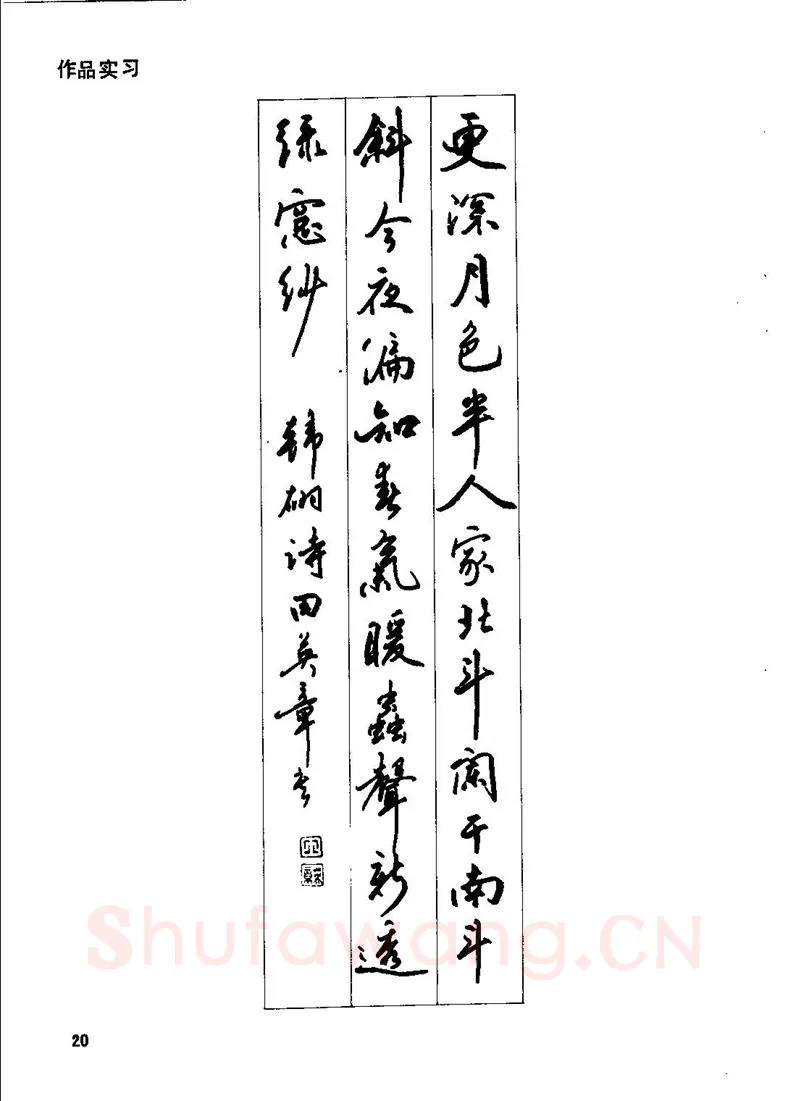 作品实习
更深月色半人家北斗阑干南斗
斜今夜偏知春氣暖蟲聲新透
绿窓纱 韩翃诗田英章书
Shufawang.CN
20